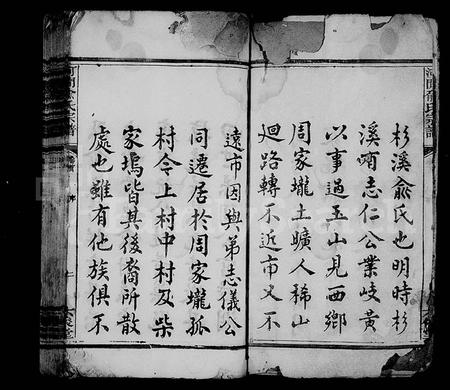 杉溪俞氏也明時杉
溪嘖志仁公業岐黃
以事過玉山見西鄉
周家壠土曠人稀山
廻路轉不近市又不
遠市因與弟志儀公
同遷居於周家壠孤
村今上村中村及柴
家塢皆其後裔所散
處也雖有他族俱不